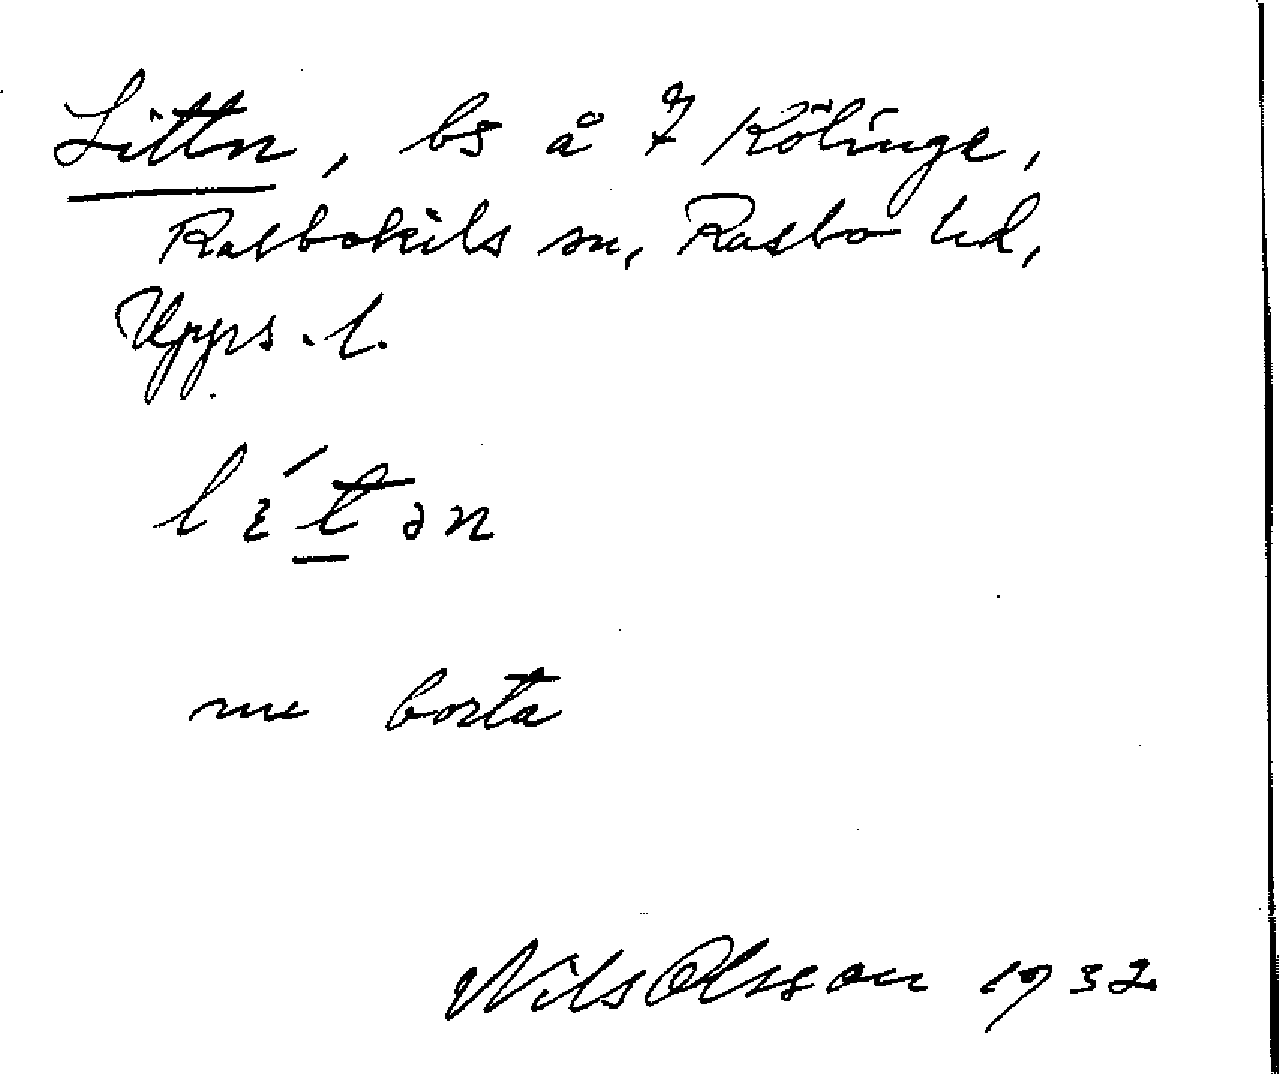 Littn, bs å 7 Kölinge,
Rasbokils sn, Rasbo hd,
Upps. l.
lítən
nu borta
Nils Olsson 1932